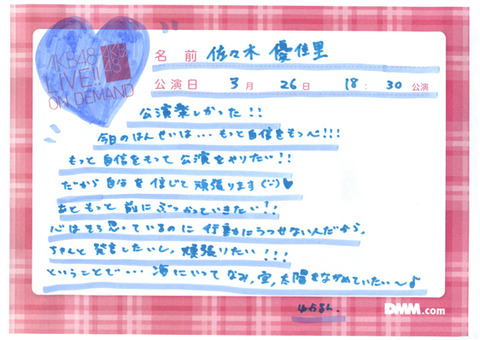 AKB48
LIVE!!
ON DEMAND
AKB
48
名前 佐々木 優佳里
公演日 3月 26日 18:30 公演
公演楽しかった!!
今日のはんせいは…もっと自信をもつべし!!!
もっと自信をもって公演をやりたい!!
だから自分を信じて頑張ります(¨)♥
あともっと前にぶつかっていきたい!!
心はそう思っているのに行動にうつせないんだから、
ちゃんと発言したいし、頑張りたい!!!
ということで…海にいってなみ、空、太陽をながめていたい〜♪
ゆかるん。
DMM.com